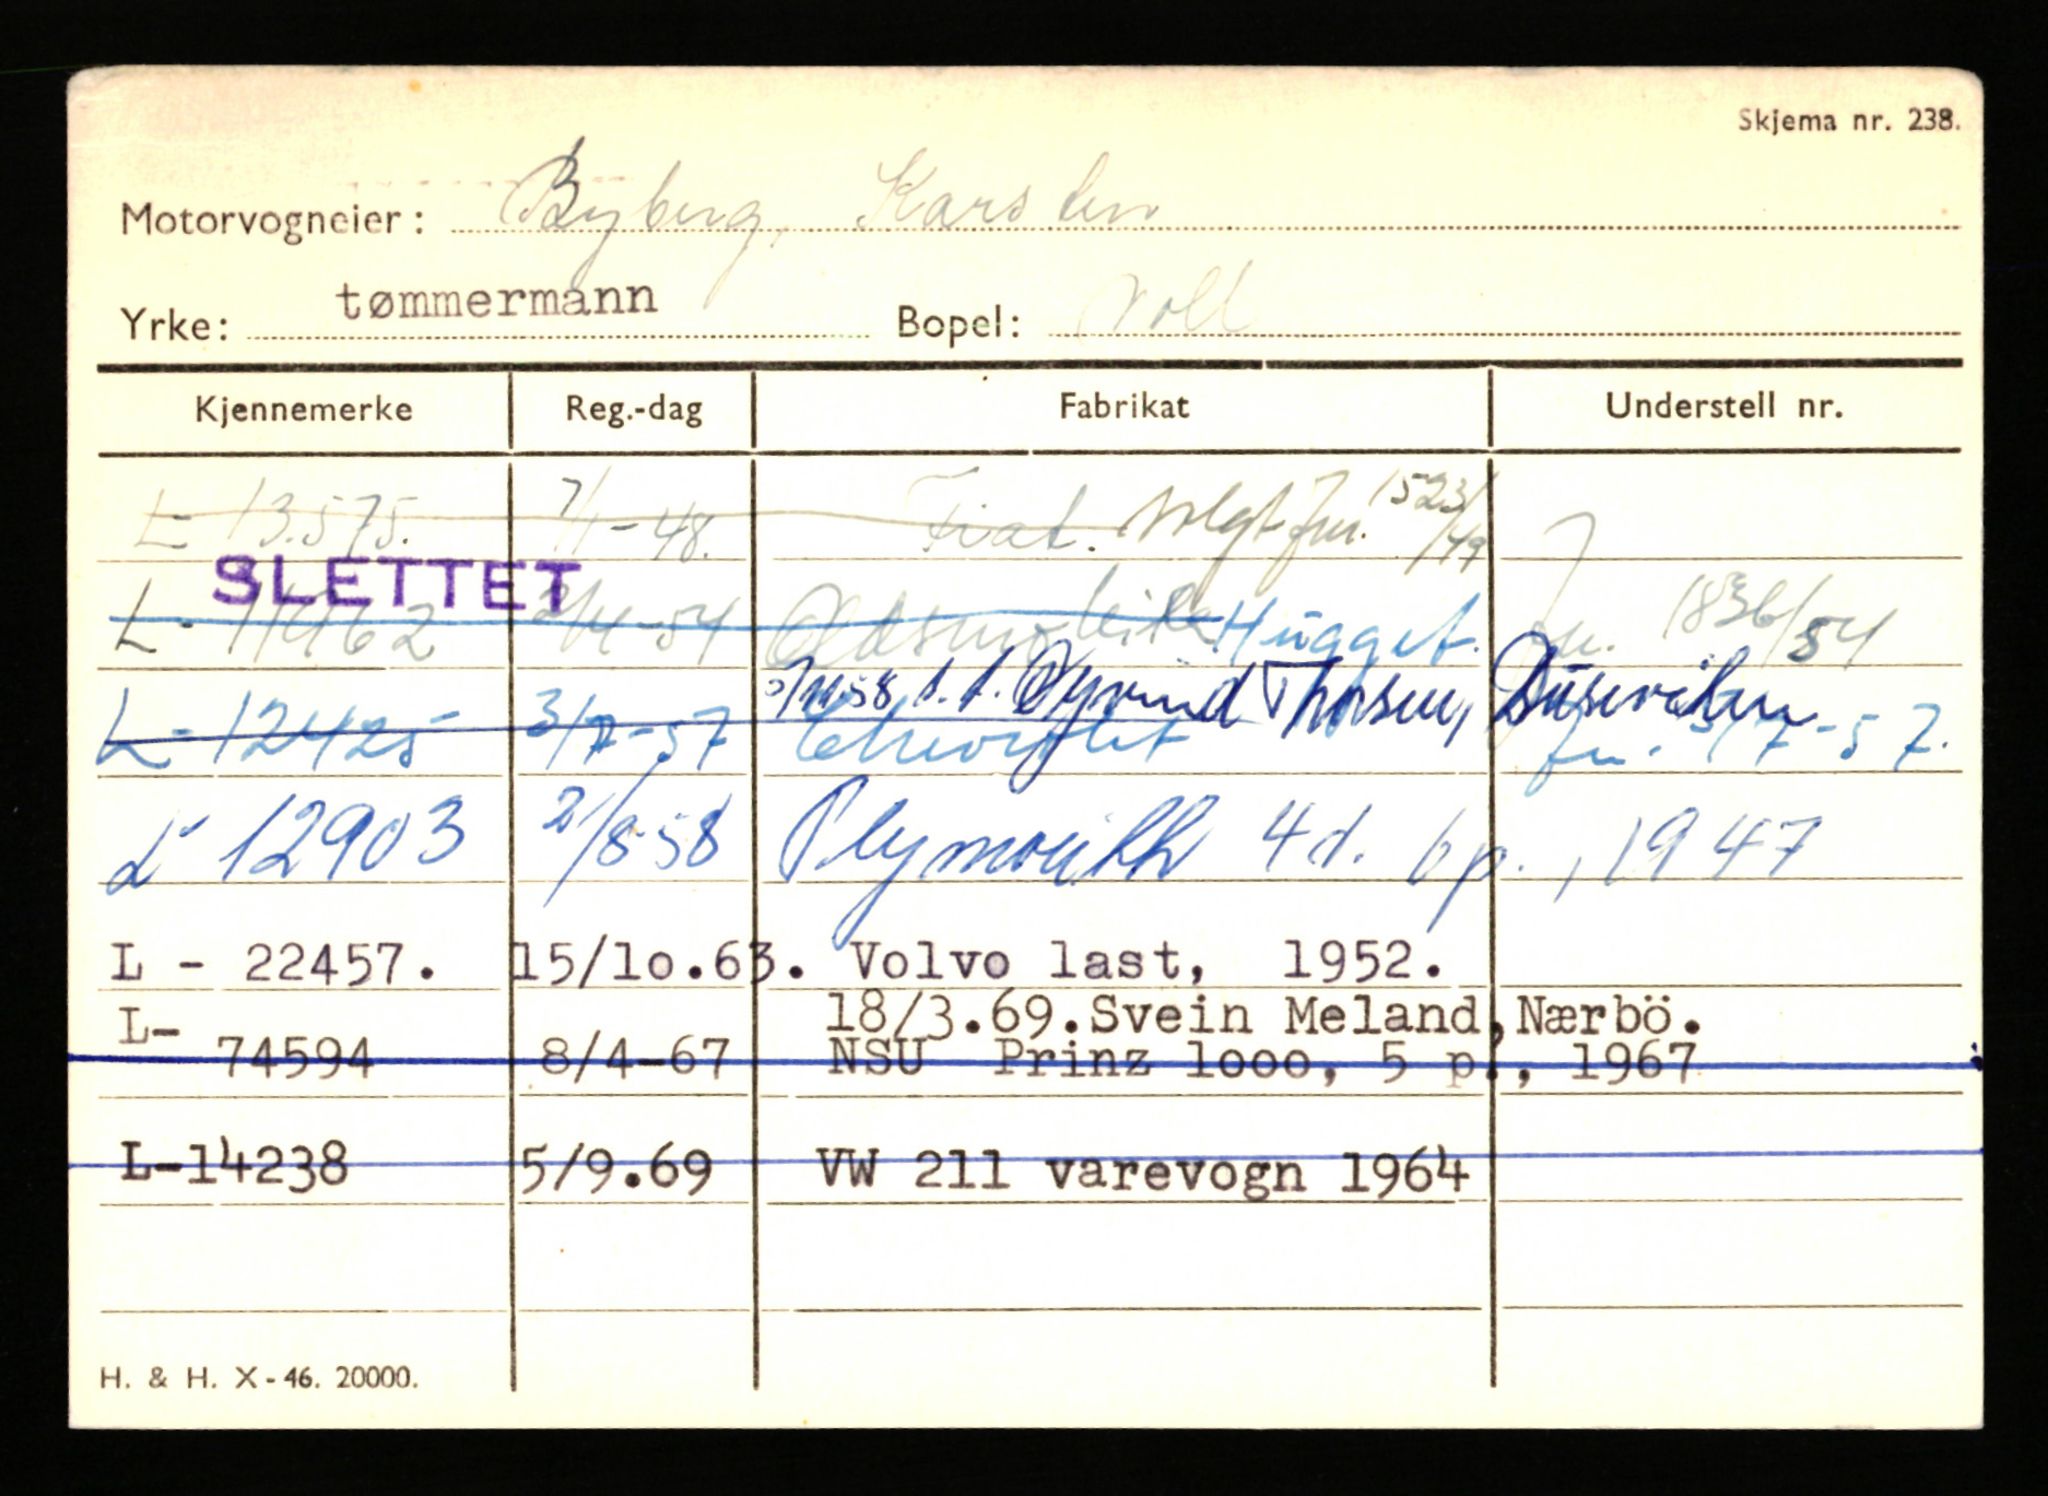 Skjema nr. 238.
Motorvogneier: Byberg, Karsten
Yrke: tømmermann Bopel: Voll
Kjennemerke Reg.-dag Fabrikat Understell nr.
L- 13.575. 7/1-48. Fiat. Solgt jnr. 1523/49
SLETTET
L- 11462 2/4-54 Oldsmobile Hugget. jnr. 1836/54
58 Øyvind Thorsen,
L- 12425 3/7-57 Chevrolet jnr. 3/7-57.
L- 12903 2/8 58 Plymouth 4d. 6p., 1947
L - 22457. 15/1o.63. Volvo last, 1952.
18/3.69.Svein Meland,Nærbö.
L- 74594 8/4-67 NSU Prinz 1ooo, 5 p., 1967
L-14238 5/9.69 VW 211 varevogn 1964
H. & H. X-46. 20000.